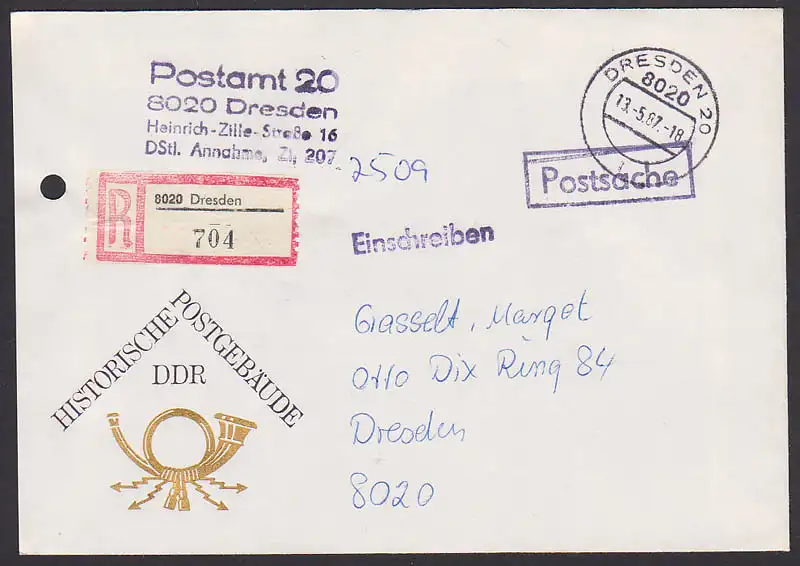 Postamt 20
8020 Dresden
Heinrich-Zille-Straße 16
DStl. Annahme, Zi, 207
2509
DRESDEN 20
8020
13.-5.87.-18
Postsache
R
8020 Dresden
704
Einschreiben
HISTORISCHE POSTGEBÄUDE
DDR
Grasselt, Margot
Otto Dix Ring 84
Dresden
8020